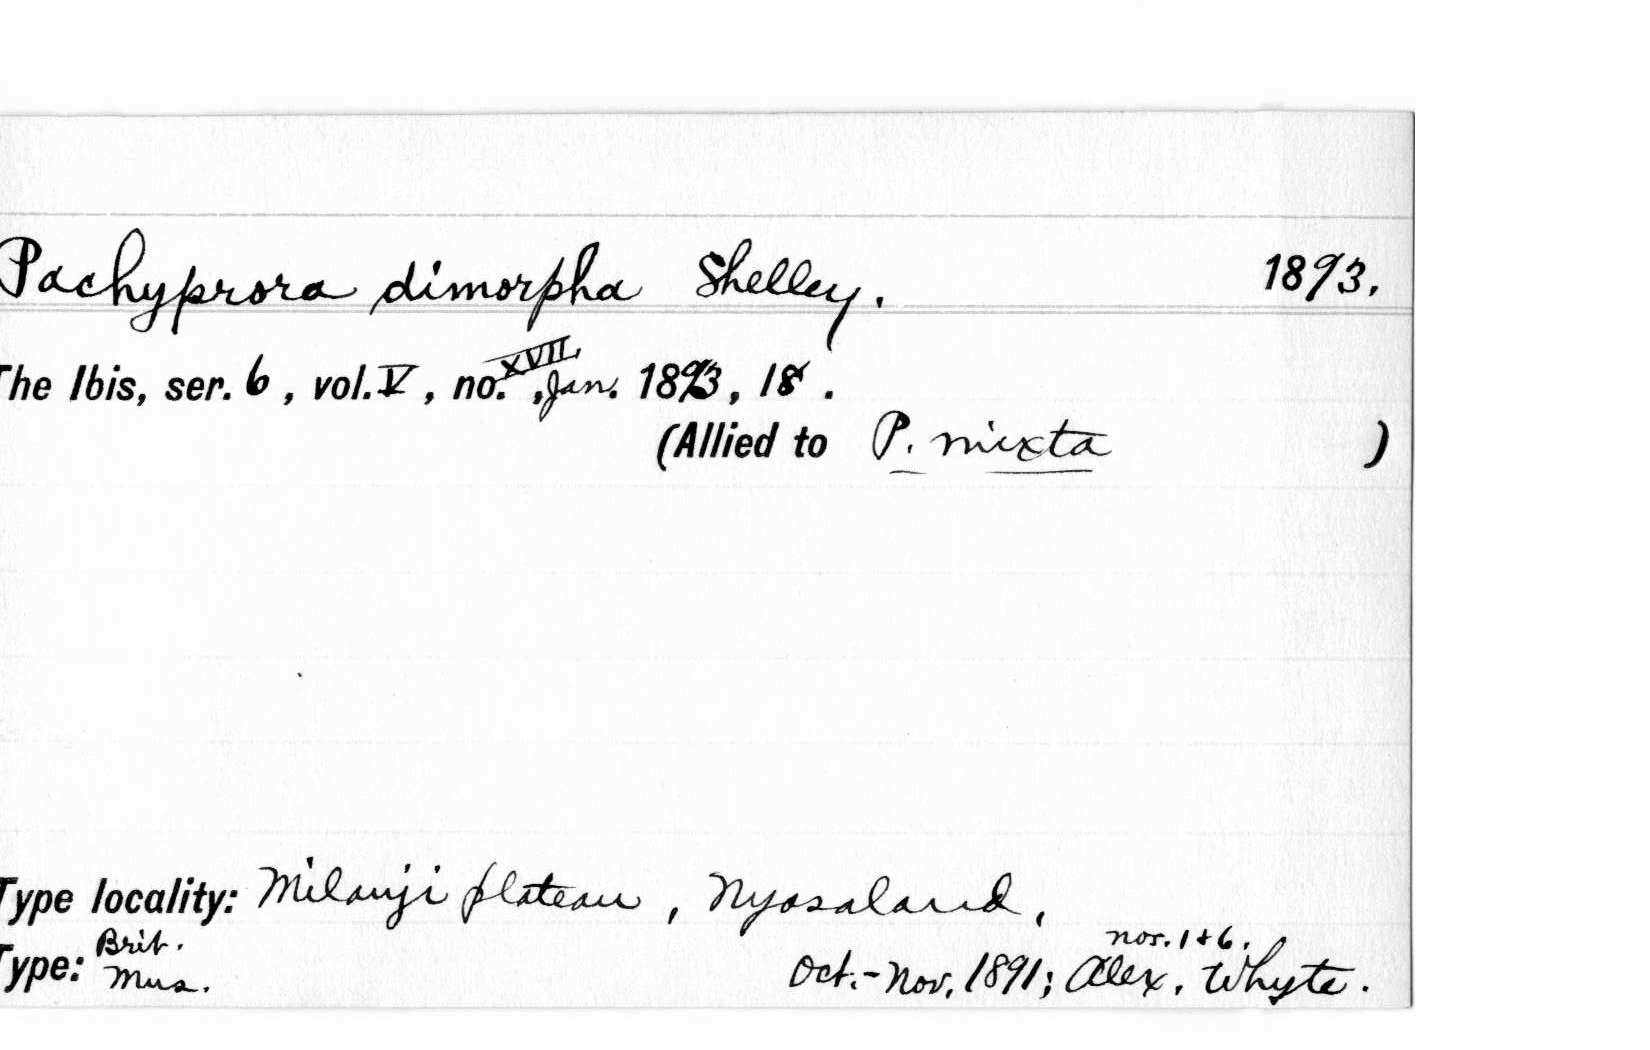 Pachyprora dimorpha Shelley. 1893.
The Ibis, ser. 6, vol. V, no. XVII, Jan. 1893, 18.
(Allied to P. mixta )
Type locality: Milanji plateau, Nyasaland,
Type: Brit. Mus. Oct.-Nov. 1891; Alex. Whyte. nos. 1+6.